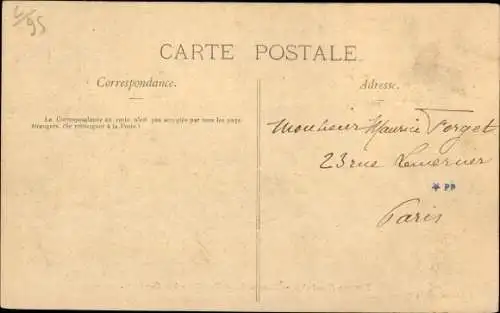 4/95
CARTE POSTALE.
Correspondance.
Adresse.
La Correspondance au verso n'est pas acceptée par tous les pays
étrangers. (Se renseigner à la Poste.)
Monsieur Maurice Forget
23 rue Lemercier
* PP
Paris